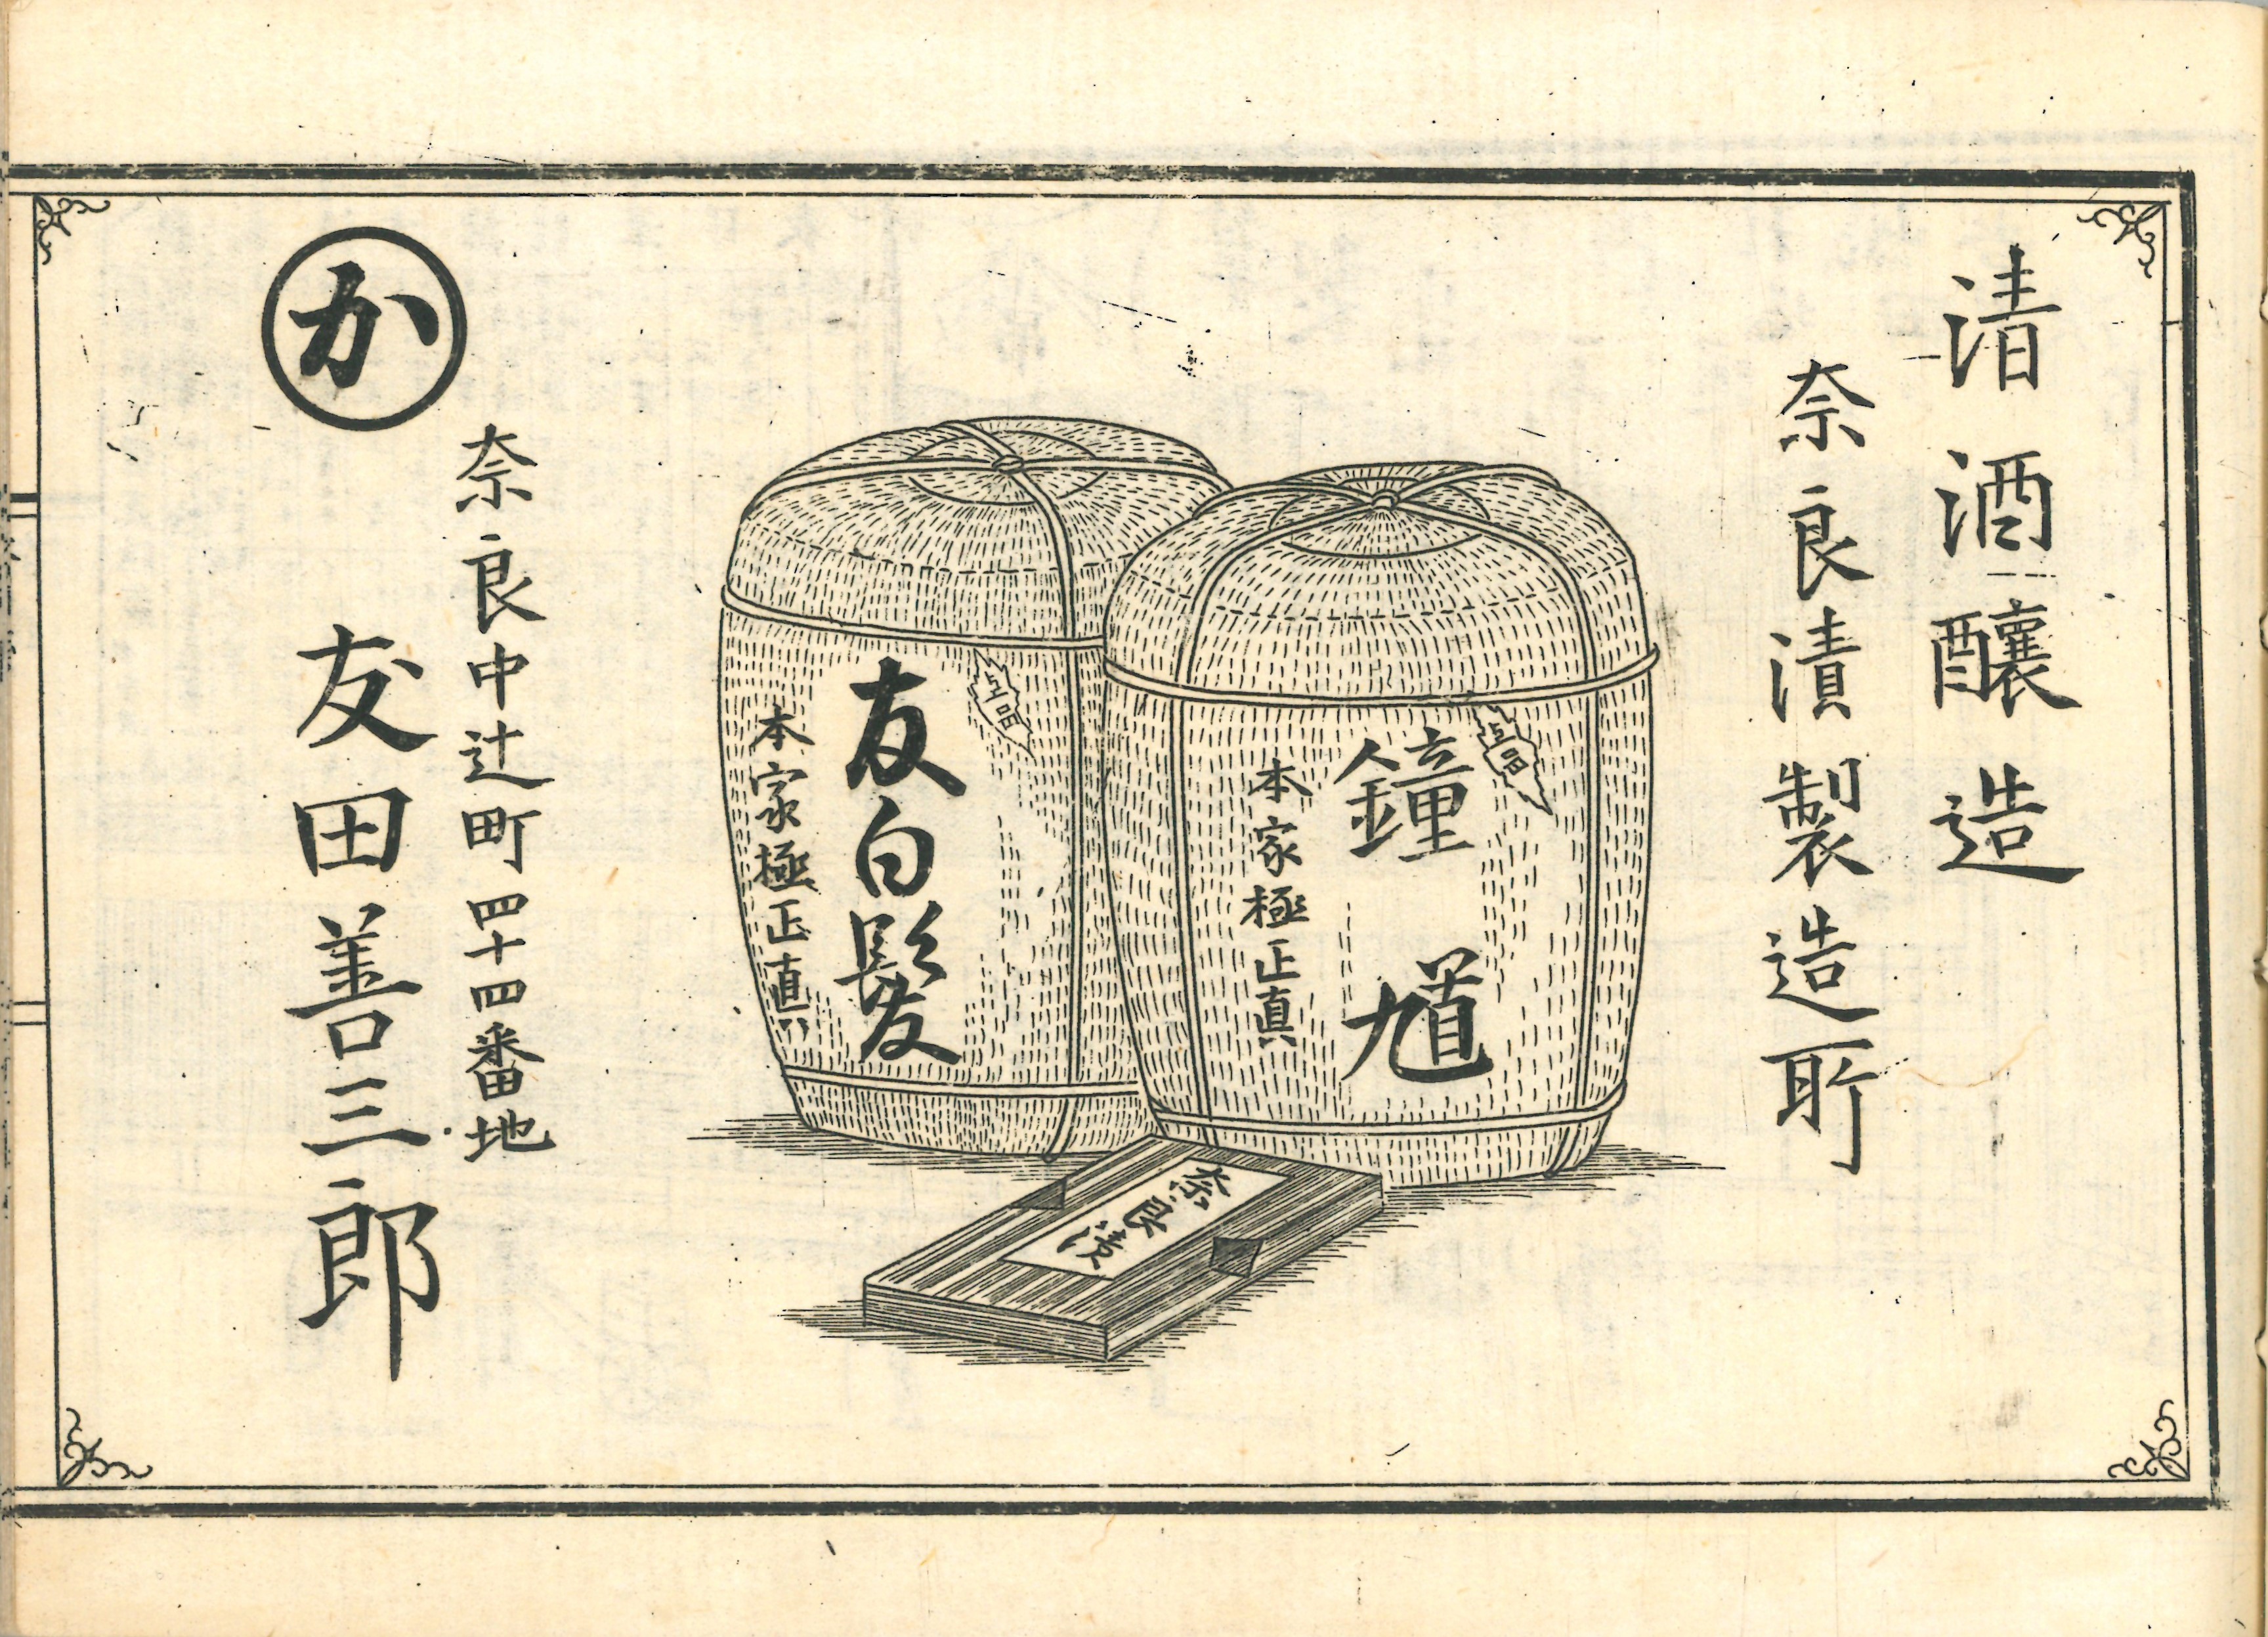 清酒醸造
奈良漬製造所
上品
鐘馗
本家極正真
上品
友白髪
本家極正真
奈良漬
奈良中辻町四十四番地
か
友田善三郎